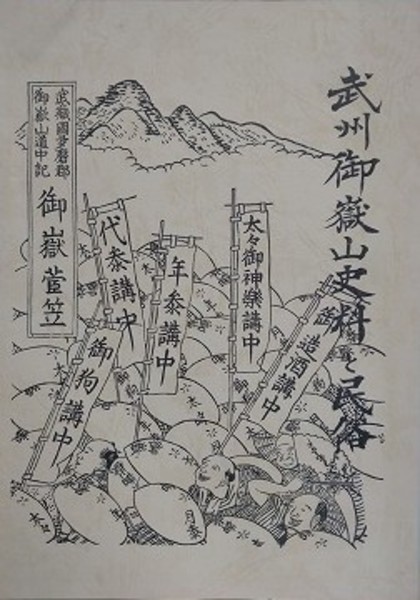 武州御嶽山史料と民俗
武蔵國多磨郡
御嶽山道中記
御嶽菅笠
代叅講中
年叅講中
太々御神樂講中
御狗講中
造酒講中
月叅
太々